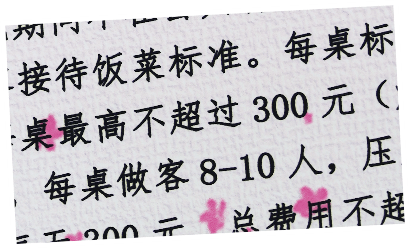 接待饭菜标准。每桌标
桌最高不超过300元（
每桌做客8-10人，压
300元 总费用不超